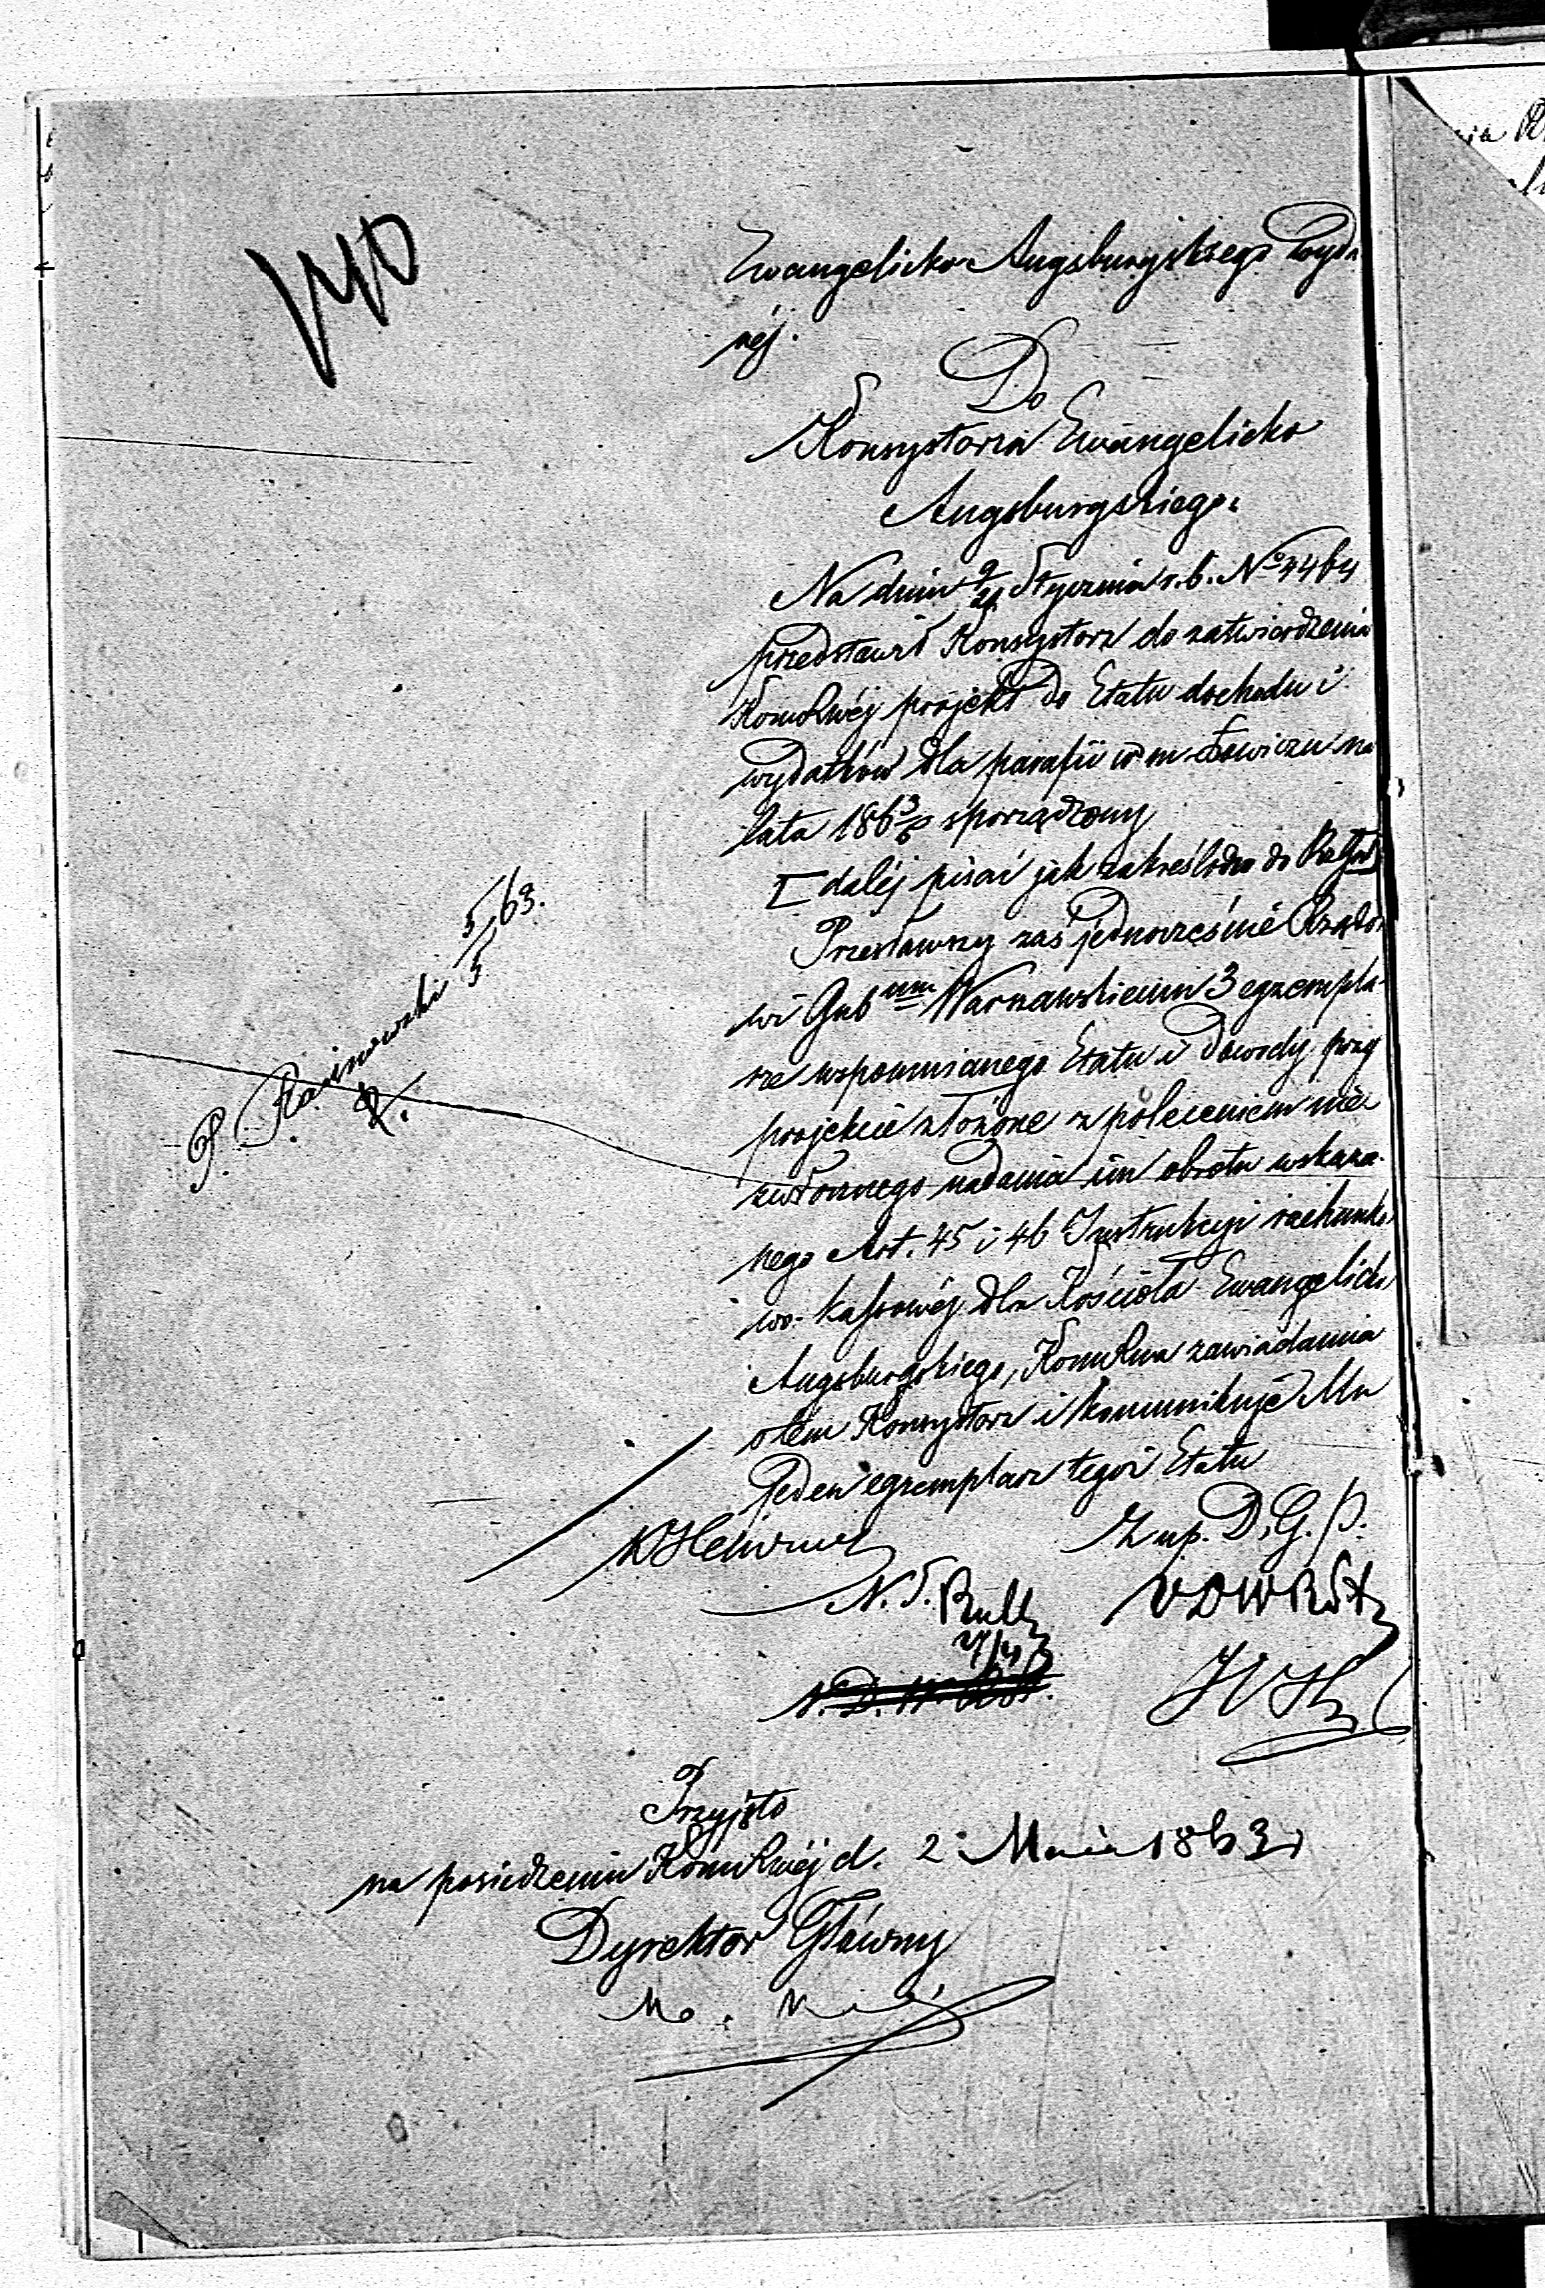 Ewangelicko Augsburgskiego wyda
néj.
Do
Konsystorza Ewangelicko
Augsburgskiego.
Na dniu 9/21 Stycznia r. b. No 4464
przedstawił Konsystorz do zatwierdzenia
KomRwéj projekt do Etatu dochodu i
wydatków dla parafii w m. Łowiczu na
lata 1863/6 sporządzony
[ daléj pisać jak zakreślono do RzGub
Przesławszy zaś jednocześnie Rządo
wi Gubnum Warszawskiemu 3 egzempla-
rze wspomnianego Etatu i dowody przy
projekcie złożone z poleceniem nie
zwłocznego nadania im obrotu wskaza-
nego Art. 45 i 46 Instrukcyi rachunko
wo-kassowéj dla Kościoła Ewangelicko
Augsburgskiego, KomRwa zawiadamia
o tém Konsystorz i kommunikuje Mu
Jeden egzemplarz tegoż Etatu
P. Rasinowski 5/5 63.
Z up. D. G. P.
N. S.
Przyjęto
na posiedzeniu KomRwéj d. 2 Maia 1863 r
Dyrektor Główny